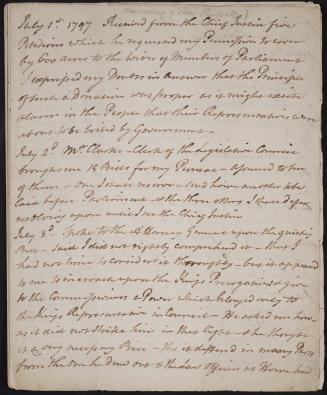 July 1st 1797 Received from the Chief Justice five
Petitions which he requested my Permission to cover
by 600 Acres to the wives of Members of Parliament
expressed my Doubts in answer that the Principle
of such a Donation was proper as it might excite
alarm in the People that their Representatives were
about to be bribed by Government.
July 2d Mr. Clarke - Clerk of the Legislative Council
brought me 15 Bills for my Perusal - assented to two
of them - one I shall reserve - send home another to be
laid before Parliament & the three others I shall defer
resolving upon until I see the Chief Justice
July 3d Spoke to the Attorney General upon the quieting
Bill - said I did not rightly comprehend it - that I
had not time to consider it thoroughly - but it appeared
to me to incroach upon the Kings Prerogative & give
to the Commissioners a Power which belonged only to
the Kings Representative in Council - He asked me how
as it did not strike him in that light - & he thought
it a very necessary Bill - this it differ'd in many Parts
from the one he had sent & the Law Officers at Home had